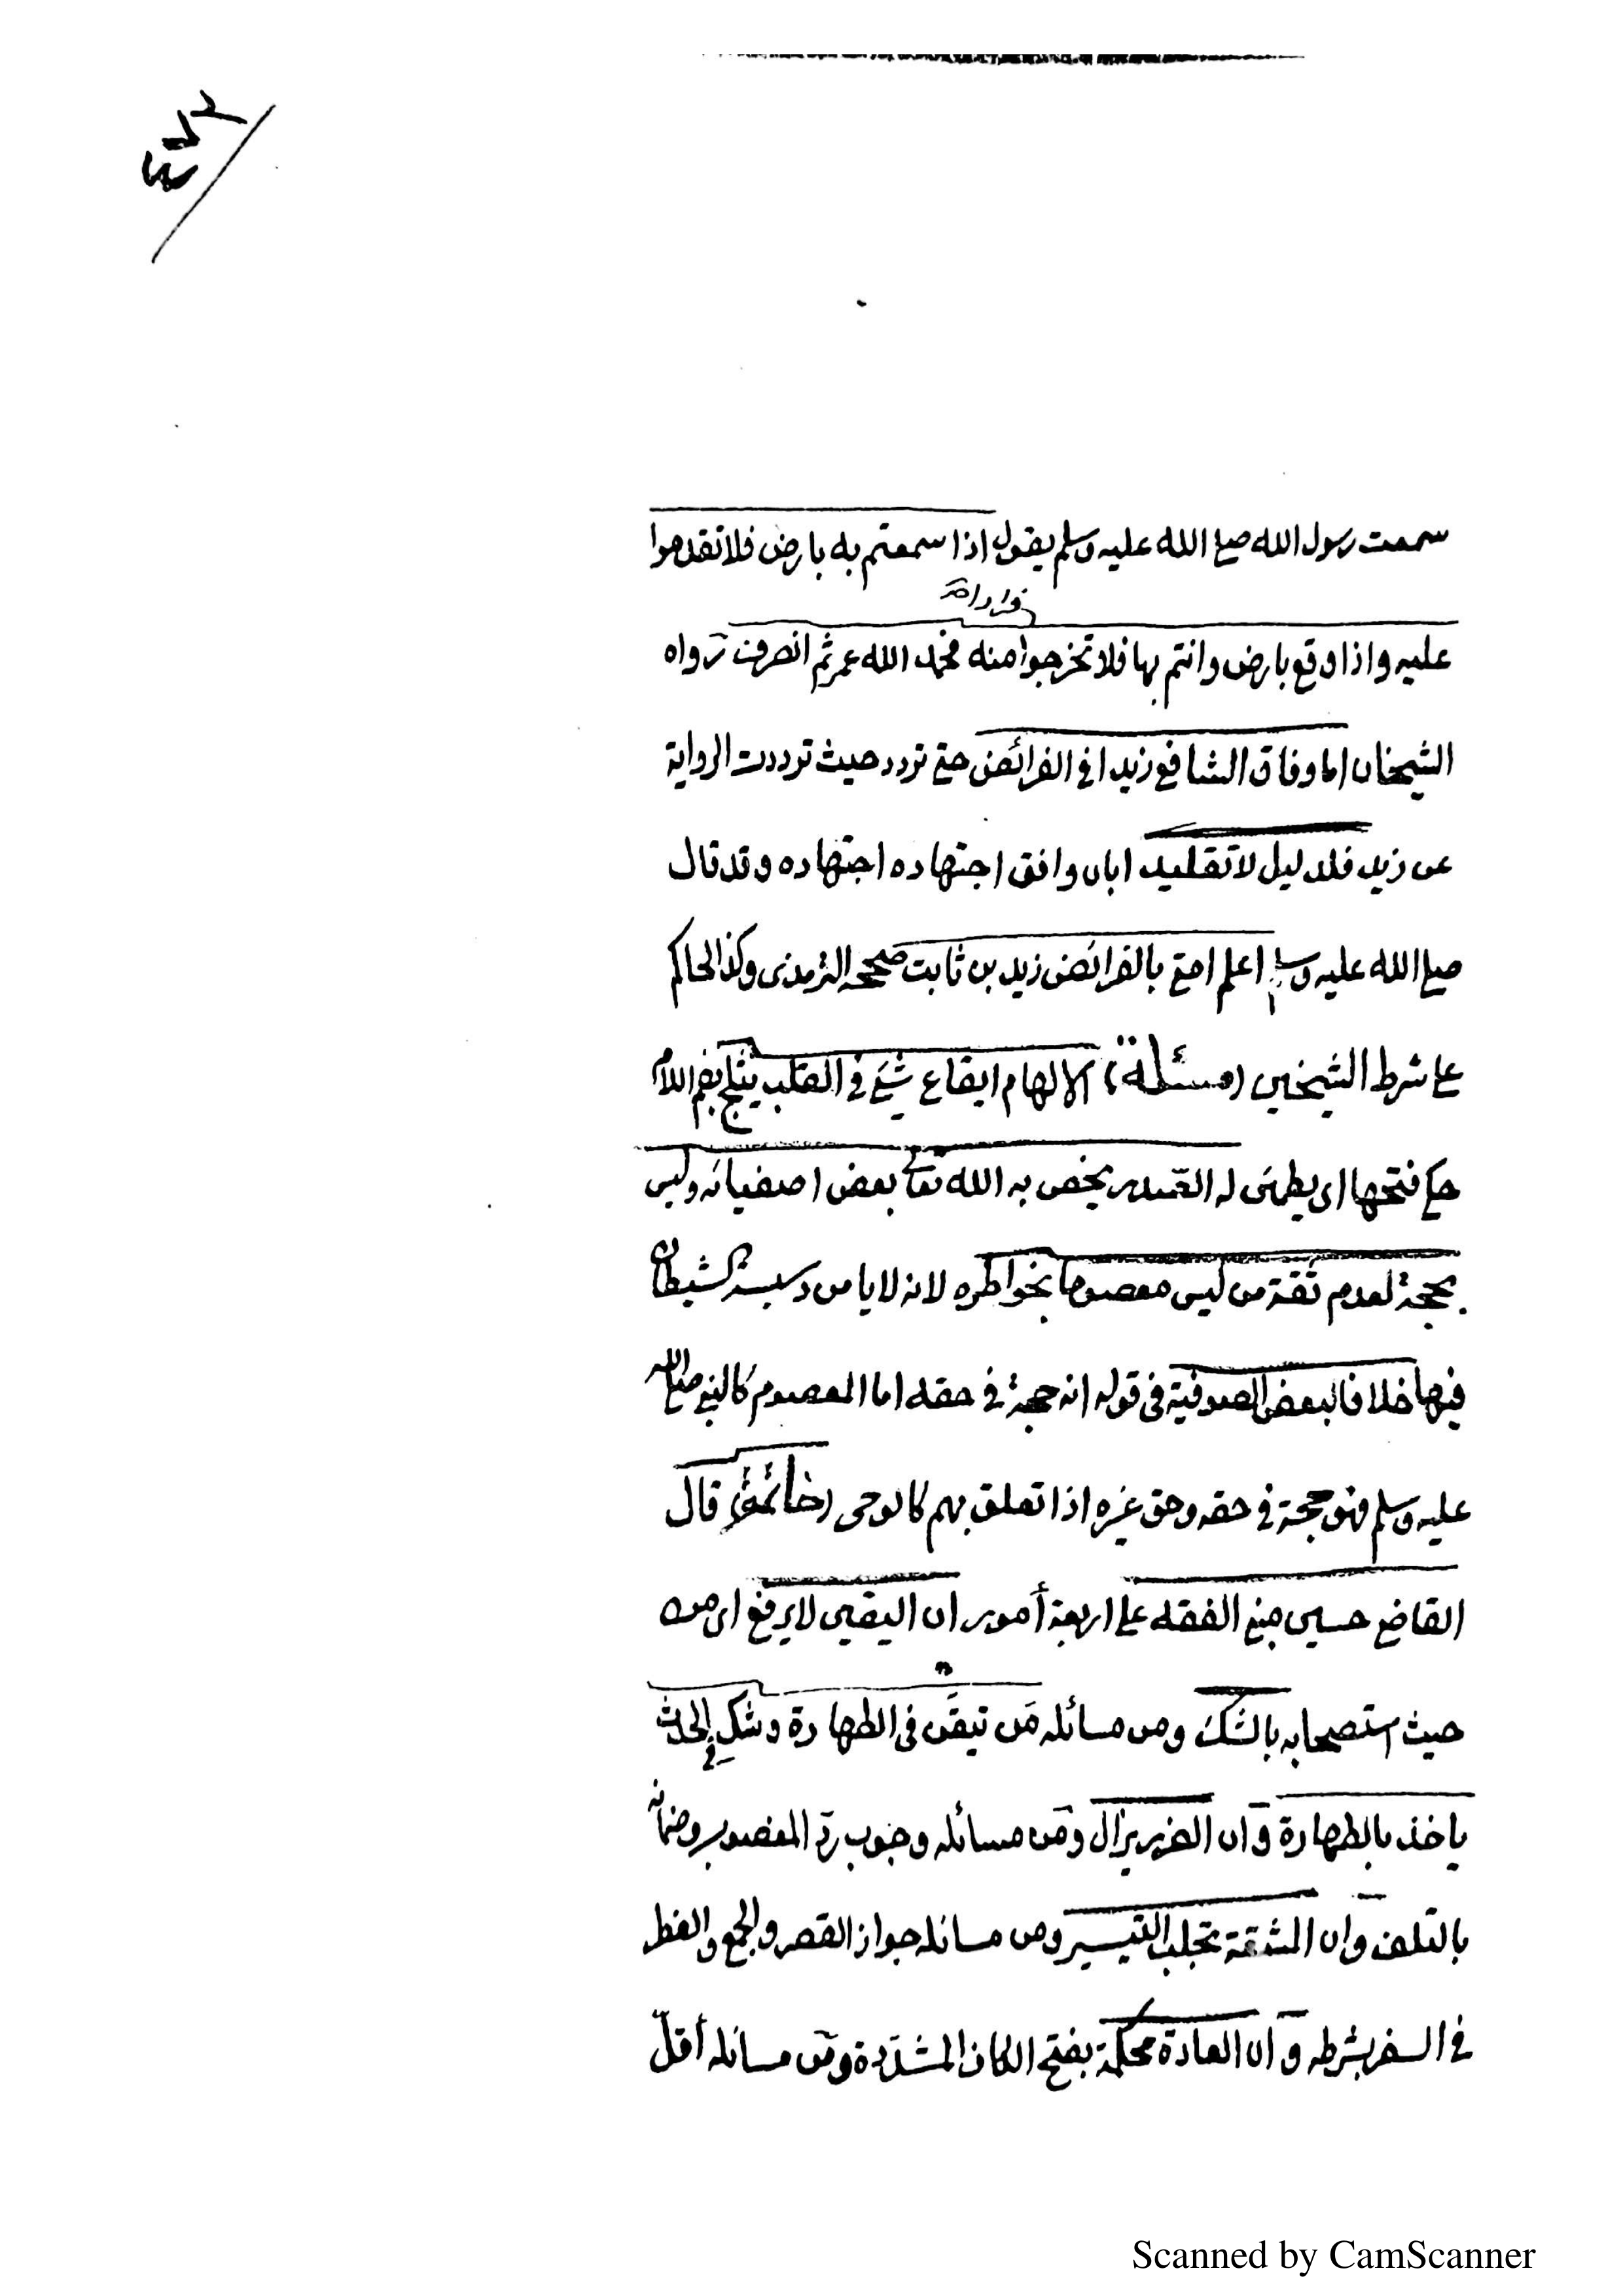 سمعت رسول الله صلى الله عليه وسلم يقول اذا سمعتم به بارض فلا تقدموا
فرارا منه
عليه واذا وقع بارض وانتم بها فلا تخرجوا منه فحمد الله عمر ثم انصرف رواه
الشيخان اما وفاق الشافعي زيدا في الفرائض حتى تردد حيث ترددت الرواية
عن زيد فلدليل لا تقليد ا بان وافق اجتهاده اجتهاده وقد قال
صلى الله عليه وسلم اعلم امتي بالفرائض زيد بن ثابت صححه الترمذى وكذا الحاكم
على شرط الشيخين (مسئلة) الالهام ايقاع شيء في القلب يثلج بضم اللام
حكى فتحها اى يطمئن له الصدر يخص به الله تعالى بعض اصفيائه وليس
بحجة لعدم ثقة من ليس معصوما بخواطره لانه لا يامن دسيسة الشيطان
فيها خلافا لبعض الصوفية فى قوله انه حجة في حقه اما المعصوم كالنبي صلى الله
عليه وسلم فهو حجة في حقه وحق غيره اذا تعلق بهم كالوحى (خاتمة) قال
القاضي حسين مبنى الفقه على اربعة أمور ان اليقين لا يرفع اى من
حيث استصحابه بالشك ومن مسائله من تيقن فى الطهارة وشك في الحدث
ياخذ بالطهارة وان الضرر يزال ومن مسائله وجوب ردّ المغصوب وضمانه
بالتلف وان المشقة تجلب التيسير ومن مسائله جواز القصر والجمع والفطر
في السفر بشرطه وان العادة محكمة بفتح الكاف المشدّدة ومن مسائله أقلّ
Scanned by CamScanner